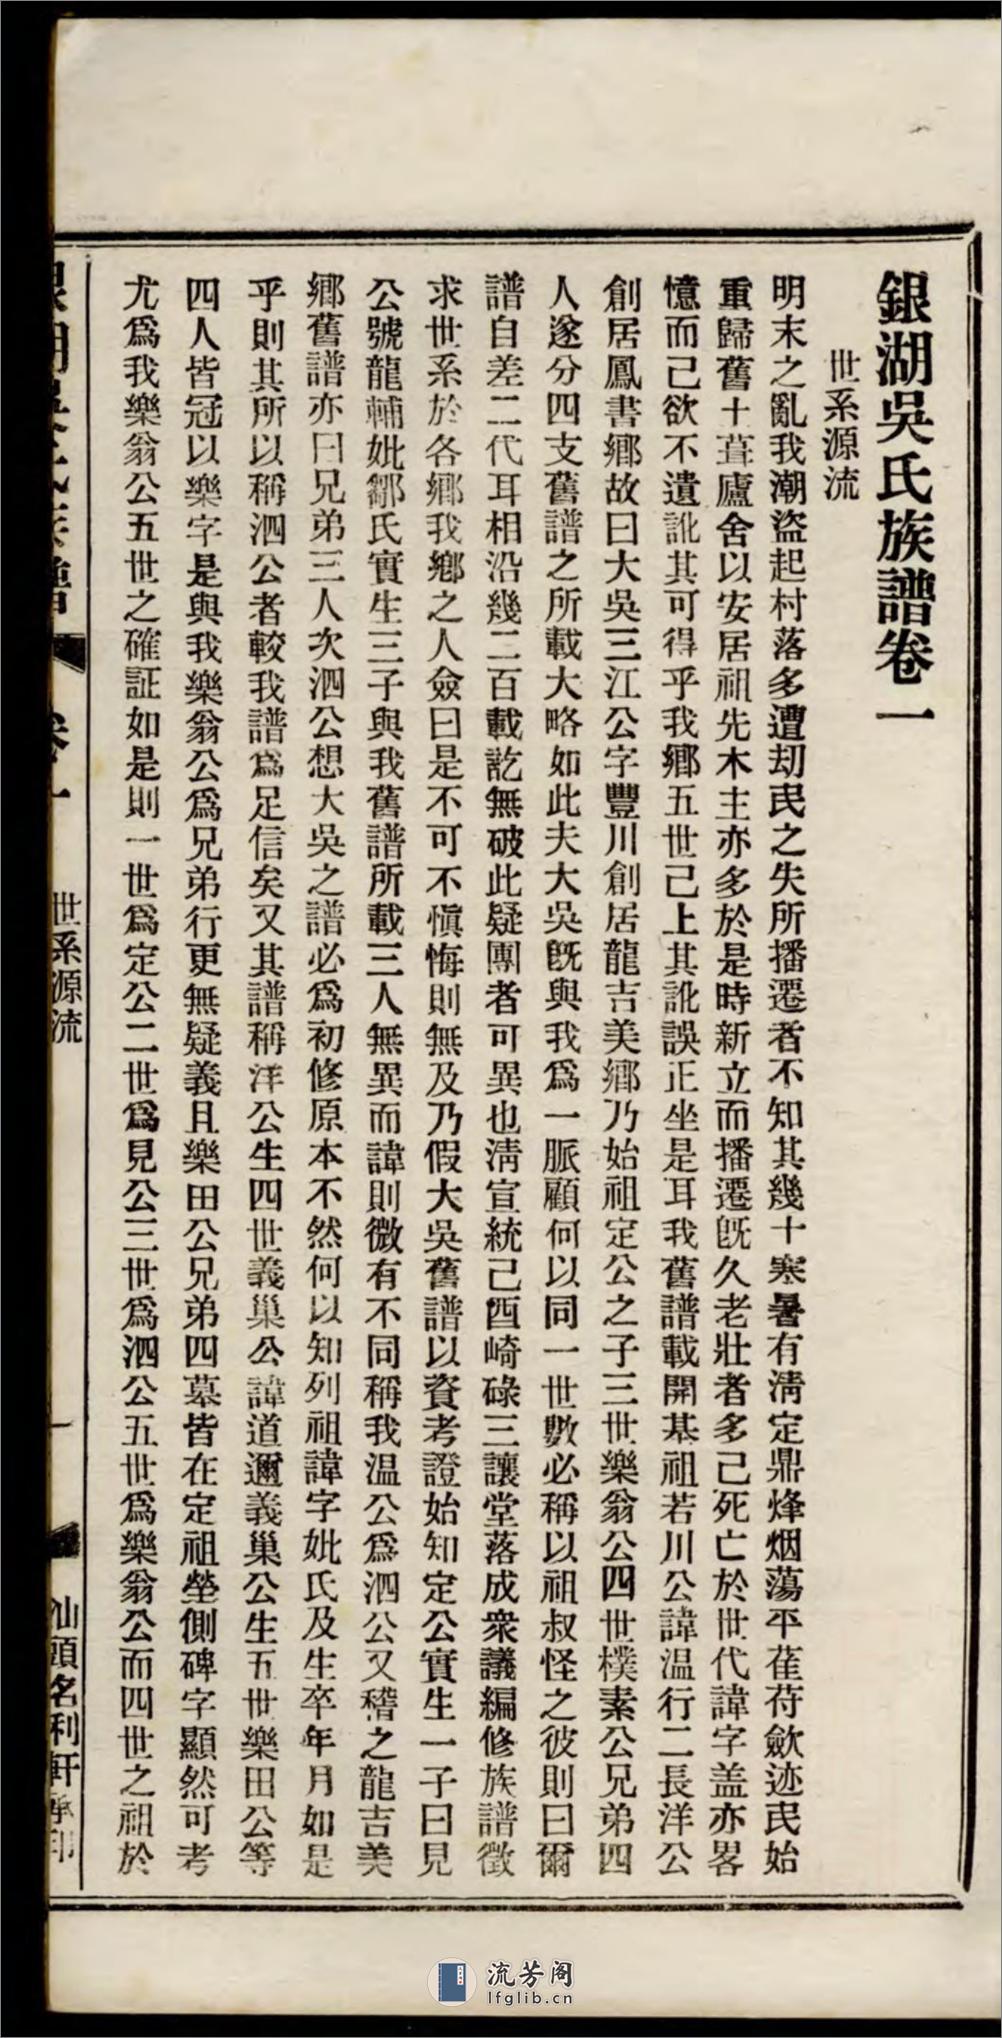 銀湖吳氏族譜卷一
世系源流
明末之亂我潮盜起村落多遭刧民之失所播遷者不知其幾十寒暑有淸定鼎烽烟蕩平萑苻歛迹民始
重歸舊土葺廬舍以安居祖先木主亦多於是時新立而播遷旣久老壯者多己死亡於世代諱字盖亦畧
憶而己欲不遺訛其可得乎我鄉五世己上其訛誤正坐是耳我舊譜載開基祖若川公諱温行二長洋公
創居鳳書鄉故曰大吳三江公字豐川創居龍吉美鄉乃始祖定公之子三世樂翁公四世樸素公兄弟四
人遂分四支舊譜之所載大略如此夫大吳旣與我爲一脈顧何以同一世數必稱以祖叔怪之彼則曰爾
譜自差二代耳相沿幾二百載訖無破此疑團者可異也淸宣統己酉崎碌三讓堂落成衆議編修族譜徵
求世系於各鄉我鄉之人僉曰是不可不愼悔則無及乃假大吳舊譜以資考證始知定公實生一子曰見
公號龍輔妣鄒氏實生三子與我舊譜所載三人無異而諱則微有不同稱我温公爲泗公又稽之龍吉美
鄉舊譜亦曰兄弟三人次泗公想大吳之譜必爲初修原本不然何以知列祖諱字妣氏及生卒年月如是
乎則其所以稱泗公者較我譜爲足信矣又其譜稱洋公生四世義巢公諱道邇義巢公生五世樂田公等
四人皆冠以樂字是與我樂翁公爲兄弟行更無疑義且樂田公兄弟四墓皆在定祖塋側碑字顯然可考
尤爲我樂翁公五世之確証如是則一世爲定公二世爲見公三世爲泗公五世爲樂翁公而四世之祖於
銀湖吳氏族譜 卷一 世系源流 一 汕頭名利軒承印
流芳阁
lfglib.cn